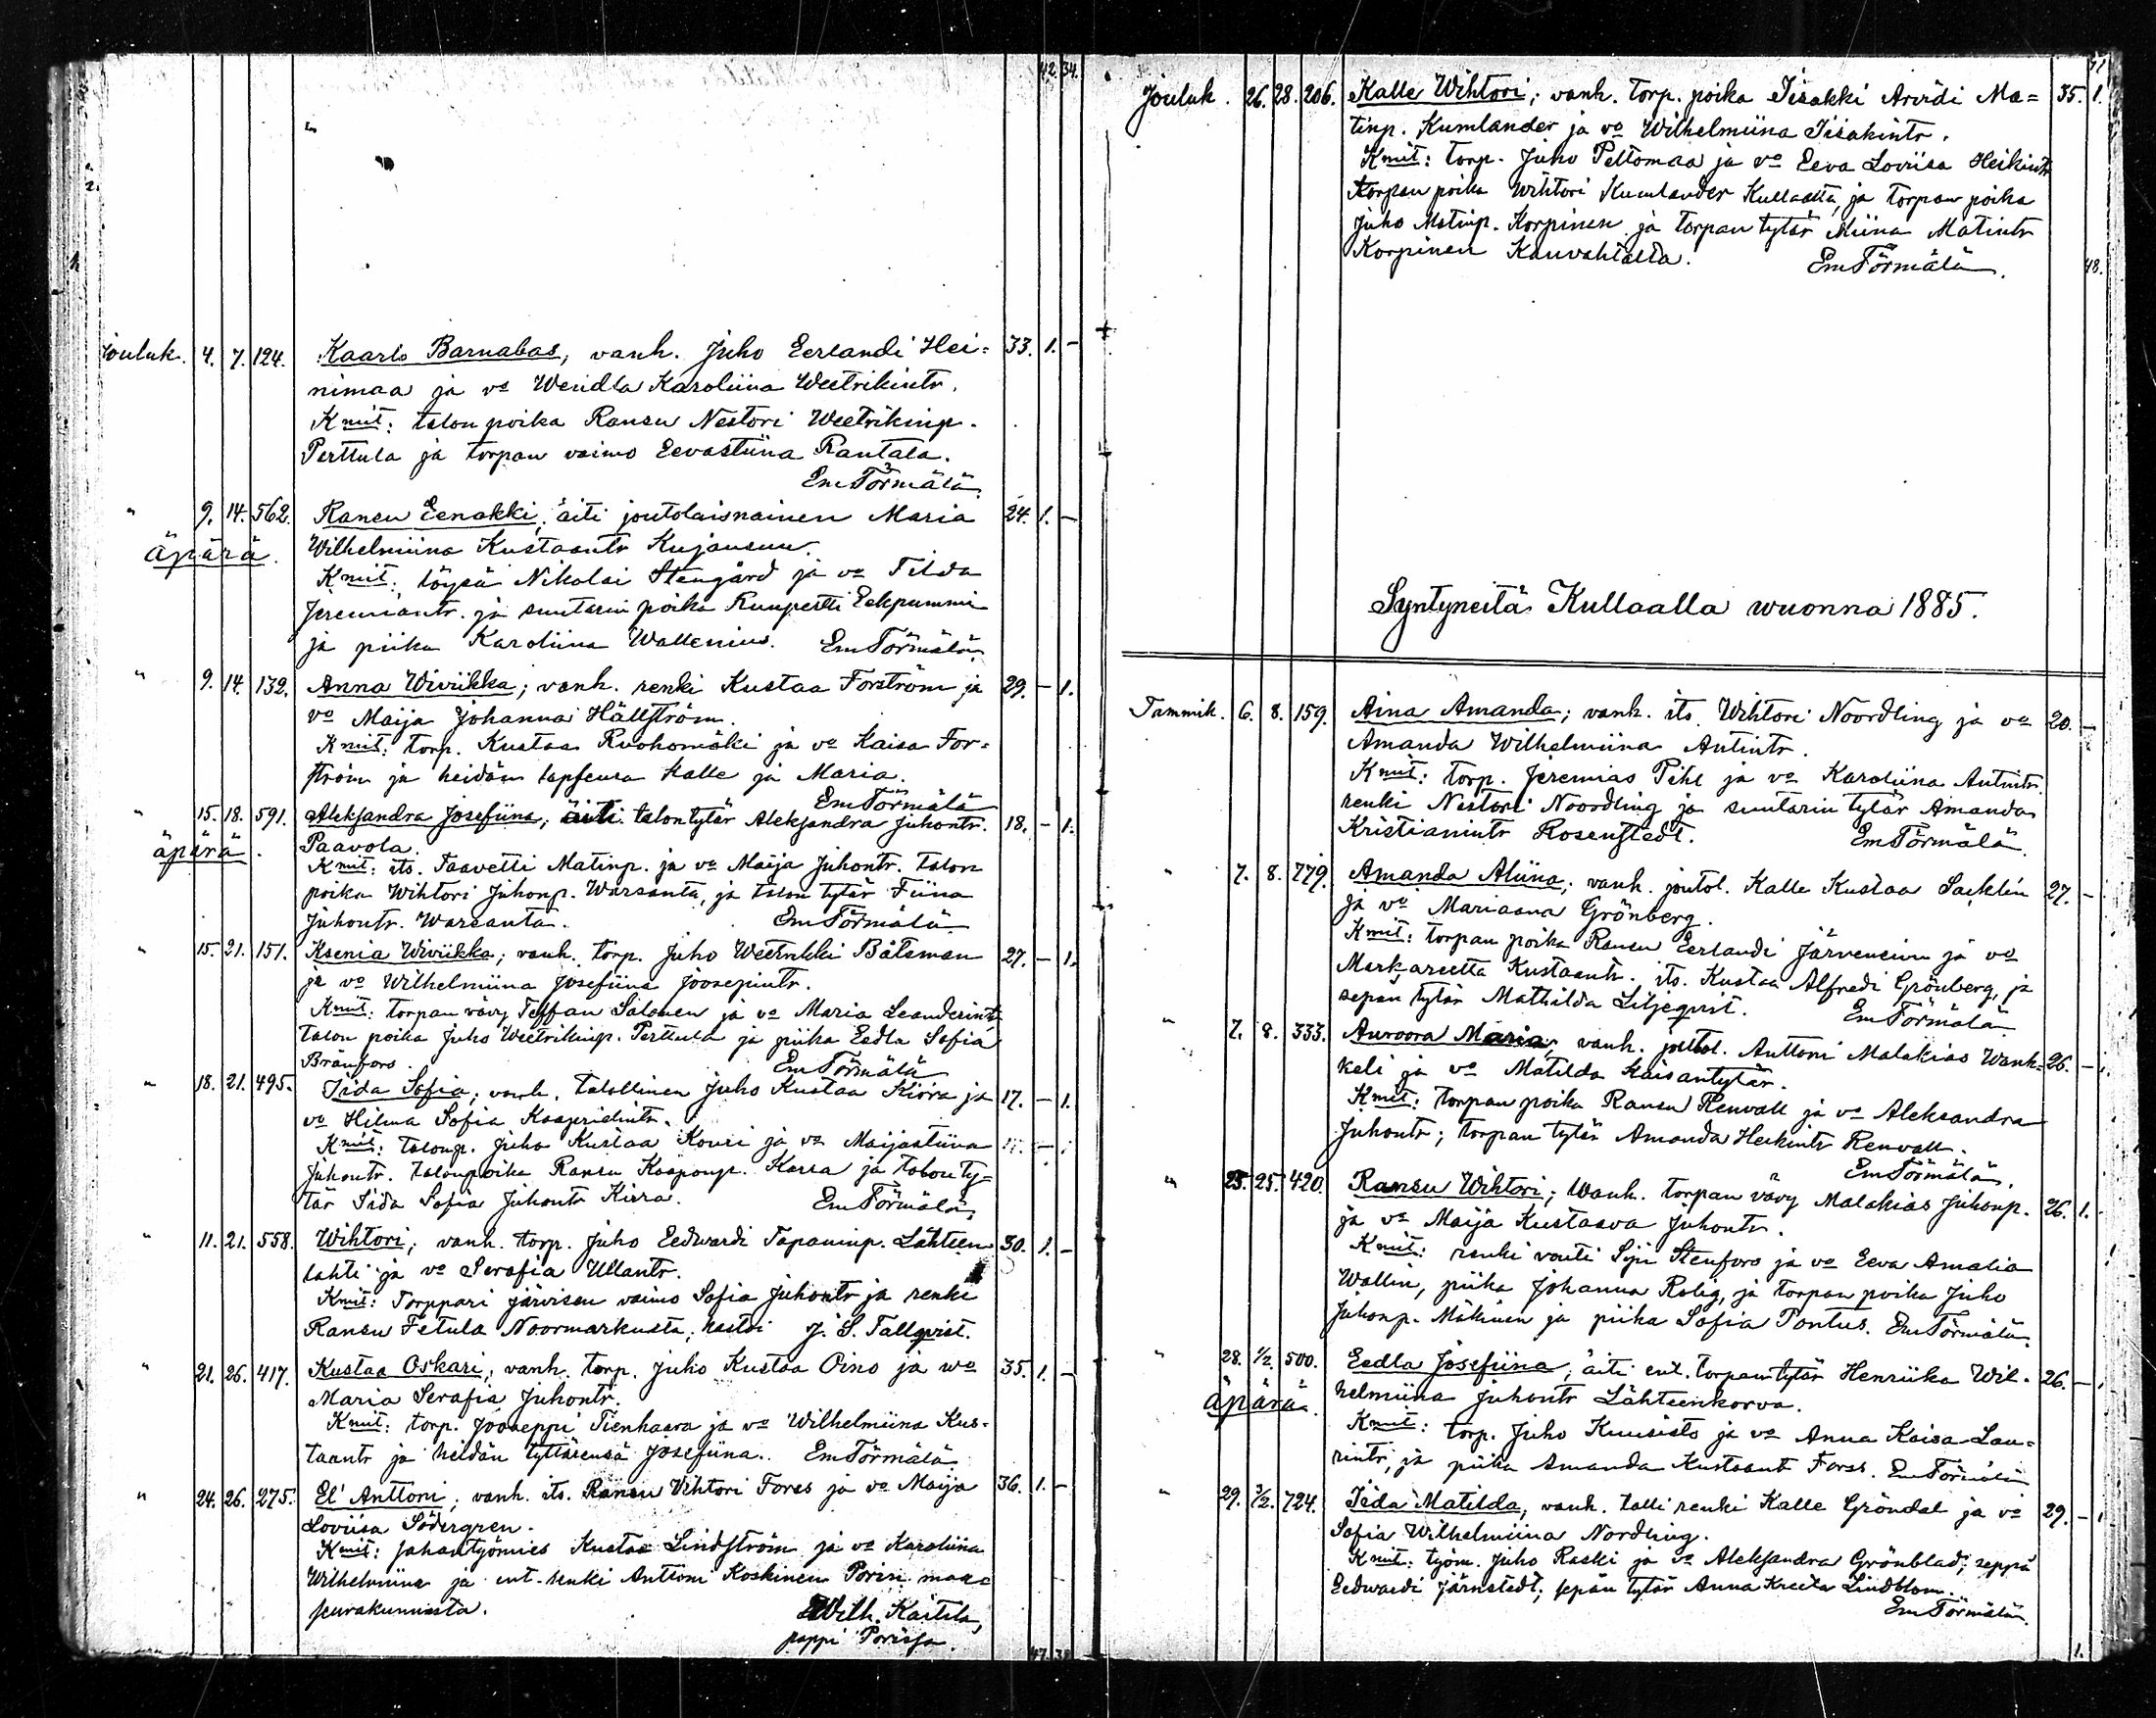 42. 34.
Jouluk. 4. 7. 124. Kaarlo Barnabas, vanh. Juho Eerlandi Hei= 33. 1. -
nimaa ja vo Wendla Karoliina Weetrikintr.
Kmit: talon poika Ransu Nestori Weetrikinp.
Perttula ja torpan vaimo Eevastiina Rantala.
Em Törmälä.
" 9. 14. 562. Ransu Eenokki, äiti joutolaisnainen Maria 24. 1. -
äpärä. Wilhelmiina Kustaantr Kujansuu.
Kmit: löysä Nikolai Stengård ja vo Tilda
Jeremiantr. ja suutarin poika Ruupertti Eekpummi
ja piika Karoliina Wallenius. Em Törmälä.
" 9. 14. 132. Anna Wiviikka; vanh. renki Kustaa Forström ja 29. - 1.
vo Maija Johanna Hällström.
Kmit: torp. Kustaa Ruohomäki ja vo Kaisa For=
ström ja heidän lapsensa Kalle ja Maria.
Em Törmälä
" 15. 18. 591. Aleksandra Josefiina; äiti talontytär Aleksandra Juhontr. 18. - 1.
äpärä. Paavola.
Kmit: its. Taavetti Matinp. ja vo Maija Juhontr. talon
poika Wihtori Juhonp. Warsanta, ja talon tytär Fiina
Juhontr. Warsanta. Em Törmälä
" 15. 21. 151. Ksenia Wiviikka; vanh. torp. Juho Weetrikki Båtsman 27. - 1.
ja vo Wilhelmiina Josefiina Joosepintr.
Kmit: torpan vävy Teffan Salonen ja vo Maria Leanderintr,
talon poika Juho Weetrikinp. Perttula ja piika Eedla Sofia
Bränfors. Em Törmälä
" 18. 21. 495. Iida Sofia; vanh. talollinen Juho Kustaa Kiora ja 17. - 1.
vo Hilma Sofia Kasperintr.
Kmit: talonp. Juho Kustaa Kouri ja vo Maijastiina
Juhontr. talonpoika Ransu Kaaponp. Karra ja talon ty=
tär Iida Sofia Juhontr Kiora. Em Törmälä.
" 11. 21. 558. Wihtori; vanh. torp. Juho Eedwardi Tapaninp. Lähteen 30. 1. -
lahti ja vo Serafia Ullantr.
Kmit: Torppari Järvisen vaimo Sofia Juhontr ja renki
Ransu Fetula Noormarkusta; kastoi J. S. Tallqvist.
" 21. 26. 417. Kustaa Oskari; vanh. torp. Juho Kustaa Oino ja wo 35. 1. -
Maria Serafia Juhontr.
Kmit: torp. Jooseppi Tienhaara ja vo Wilhelmiina Kus=
taantr ja heidän tyttärensä Josefiina. Em Törmälä
" 24. 26. 275. El' Anttoni; vanh. its. Ransu Wihtori Forss ja vo Maija 36. 1. -
Loviisa Södergren.
Kmit: sahantyömies Kustaa Lindström ja vo Karoliina
Wilhelmiina ja ent. renki Anttoni Koskinen Porin maa=
seurakunnasta. Wilh. Kaitila,
pappi Porissa.
47.
Jouluk. 26. 28. 206. Kalle Wihtori; vanh. torp. poika Iisakki Arvidi Ma= 35. 1.
tinp. Kumlander ja vo Wilhelmiina Iisakintr.
Kmit: torp. Juho Peltomaa ja vo Eeva Loviisa Heikintr
torpan poika Wihtori Kumlander Kullaalta, ja torpan poika
Juho Matinp. Korpinen ja torpan tytär Miina Matintr
Korpinen Kauvahtalta. Em Törmälä.
48.
Syntyneitä Kullaalla wuonna 1885.
Tammik. 6. 8. 159. Aina Amanda; vanh. its. Wihtori Noordling ja vo 20. -
Amanda Wilhelmiina Antintr.
Kmit: torp. Jeremias Pihl ja vo Karoliina Antintr.
renki Nestori Noordling ja suutarin tytär Amanda
Kristianintr Rosenstedt. Em Törmälä.
" 7. 8. 779. Amanda Aliina; vanh. joutol. Kalle Kustaa Sacklén 27. -
ja vo Mariaana Grönberg.
Kmit: torpan poika Ransu Eerlandi Järvensivu ja vo
Markareetta Kustaantr. its. Kustaa Alfredi Grönberg, ja
sepän tytär Mathilda Liljeqvist. Em Törmälä
" 7. 8. 333. Auroora Maria; vanh. Anttoni Malakias Wank= 26. -
keli ja vo Matilda Kaisantytär.
Kmit: torpan poika Ransu Renvall ja vo Aleksandra
Juhontr; torpan tytär Amanda Heikintr Renvall.
Em Törmälä.
" 25. 25. 420. Ransu Wihtori; Wanh. torpan vävy Malakias Juhonp. 26. 1.
ja vo Maija Kustaava Juhontr.
Kmit: renki vouti Stenfors ja vo Eeva Amalia
Wallin, piika Johanna Rolig, ja torpan poika Juho
Juhonp. Mäkinen ja piika Sofia Pontus. Em Törmälä.
" 28. 1/2. 500. Eedla Josefiina; äiti ent. torpantytär Henriika Wil= 26. -
äpärä. helmiina Juhontr Lähteenkorva.
Kmit: torp. Juho Kuusisto ja vo Anna Kaisa Lau=
rintr, ja piika Amanda Kustaant Forss. Em Törmälä
" 29. 3/2. 724. Iida Matilda; vanh. talli renki Kalle Gröndal ja vo 29. -
Sofia Wilhelmiina Nordling.
Kmit: työm. Juho Raski ja vo Aleksandra Grönblad; seppä
Eedwardi Järnstedt; sepän tytär Anna Kreeta Lindblom.
Em Törmälä.
1.